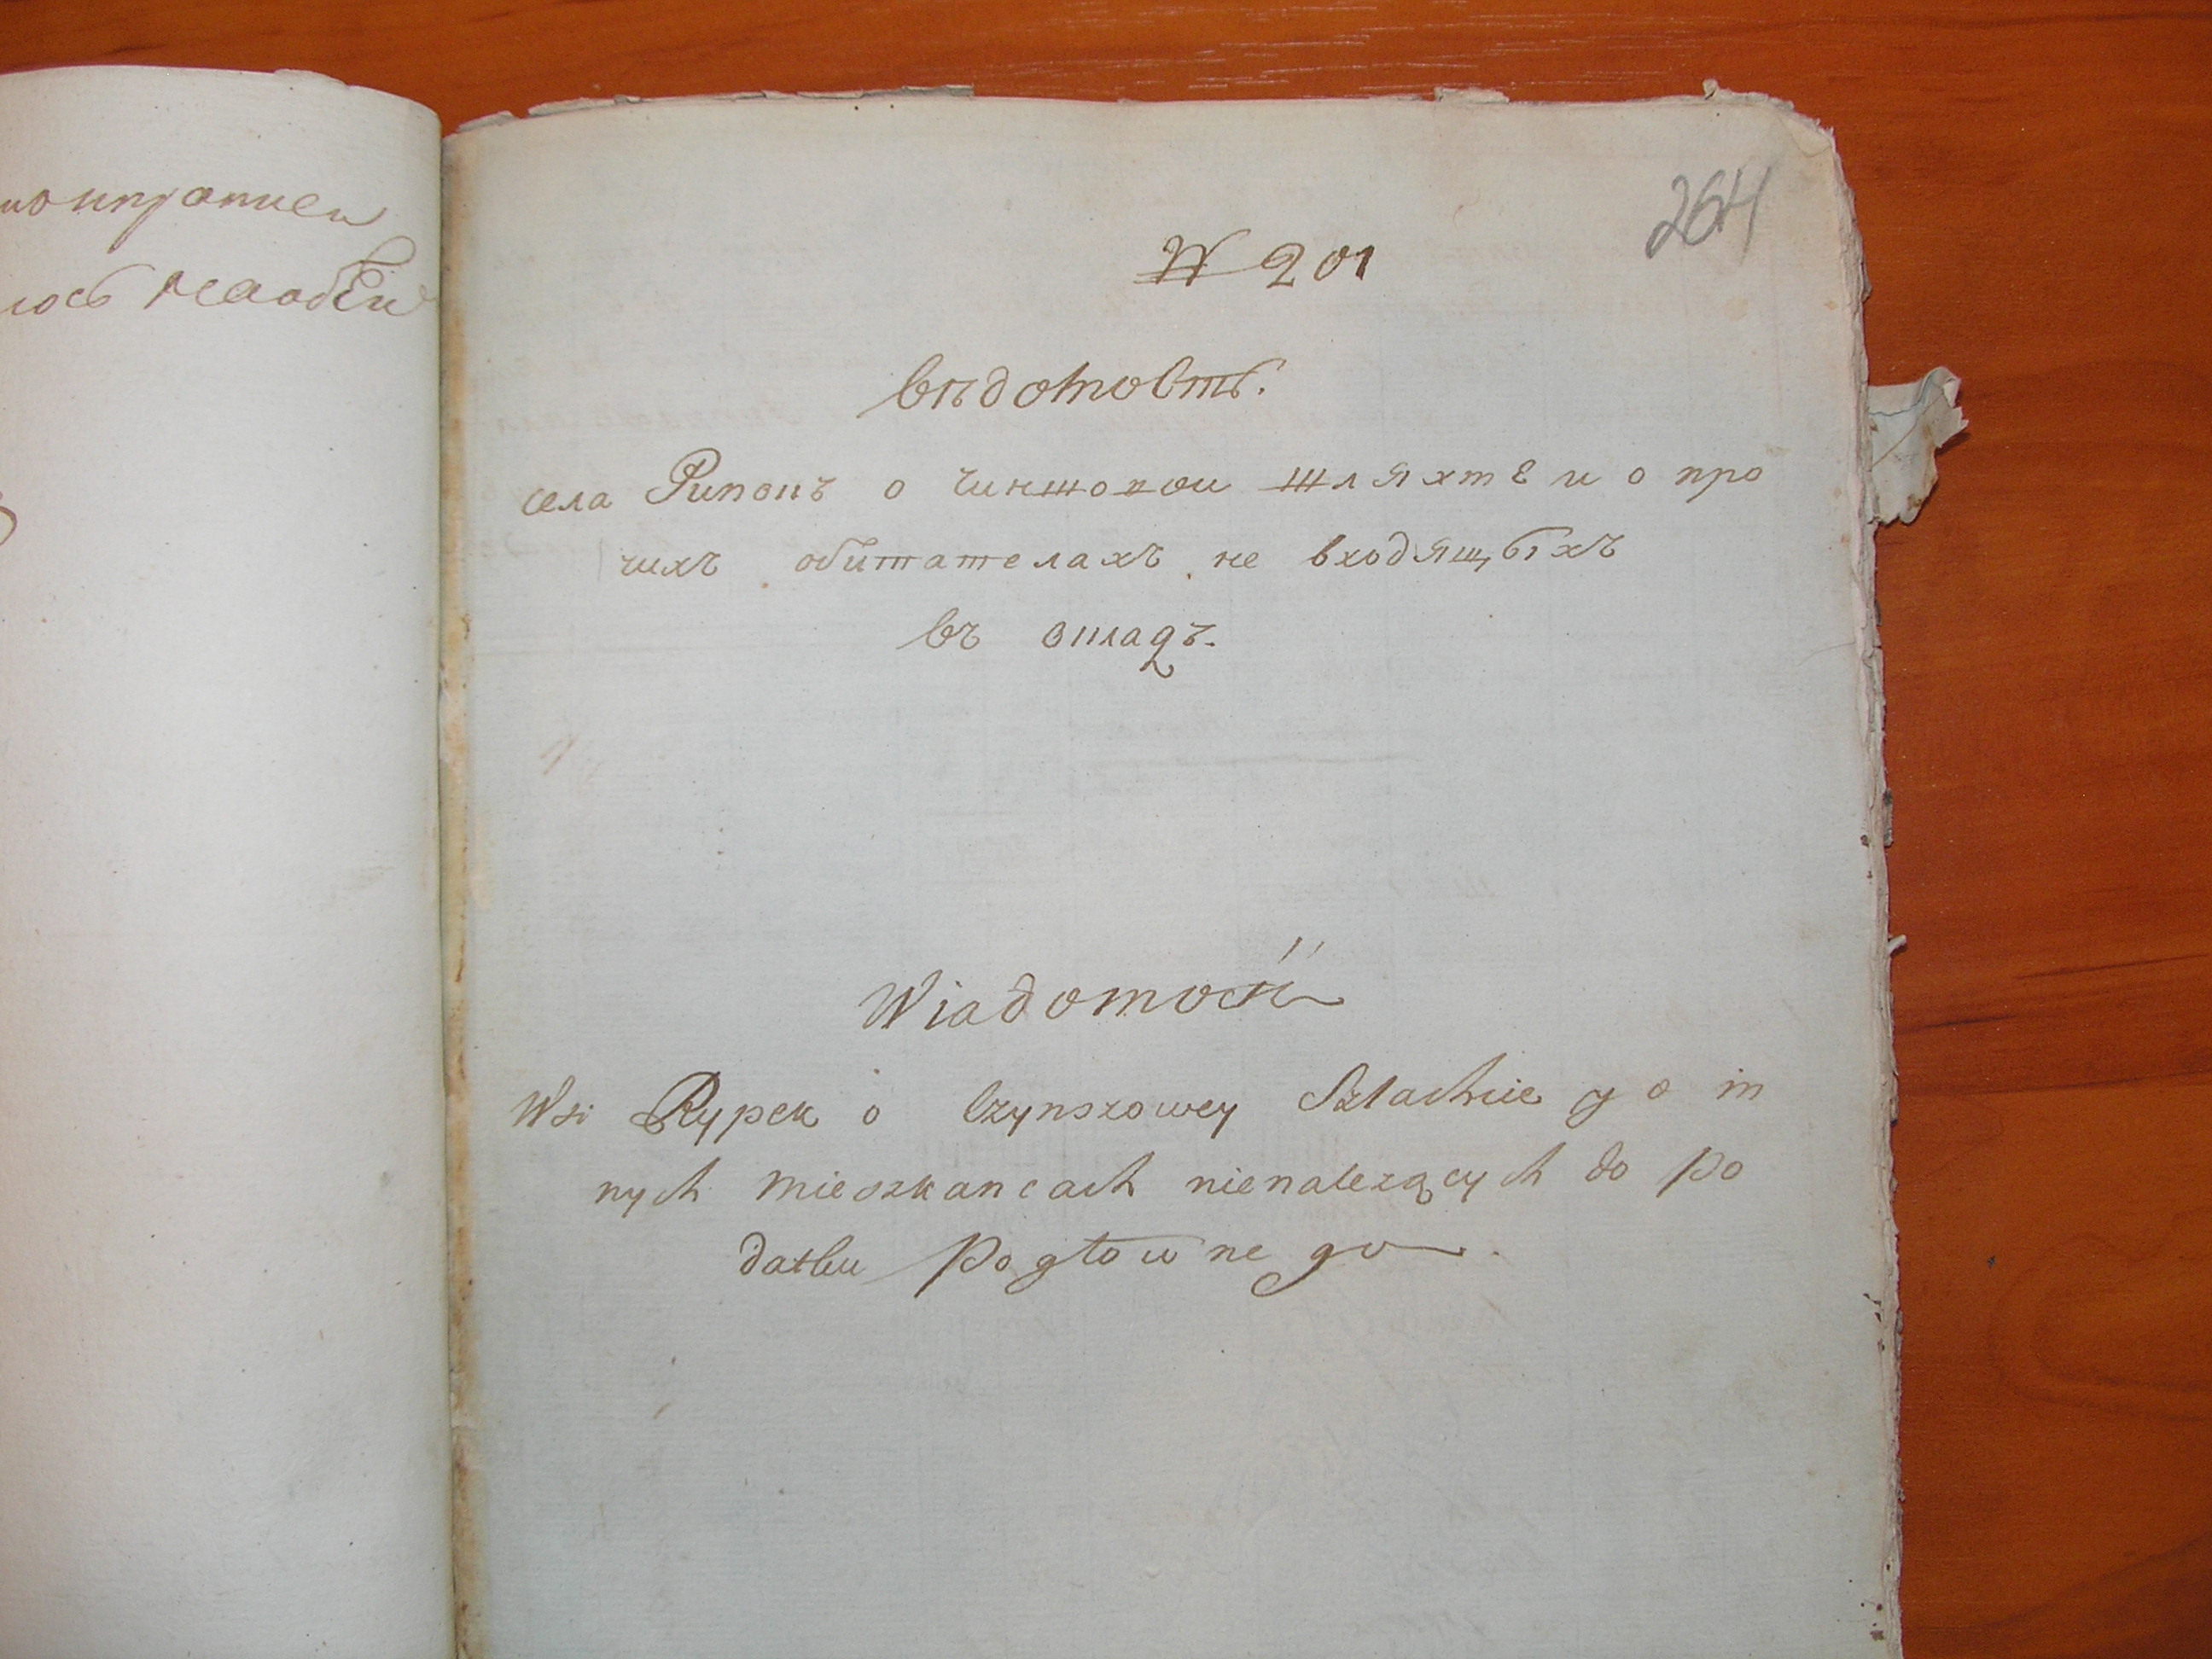 264
№ 201
вѣдомость.
села Рипокъ о чиншовои шляхте и о про
чихъ обитателахъ не входящыхъ
въ окладъ.
Wiadomość
Wsi Rypek o Czynszowey Szlachcie y o in
nych mieszkancach nienależących do po
datku Pogłownego.